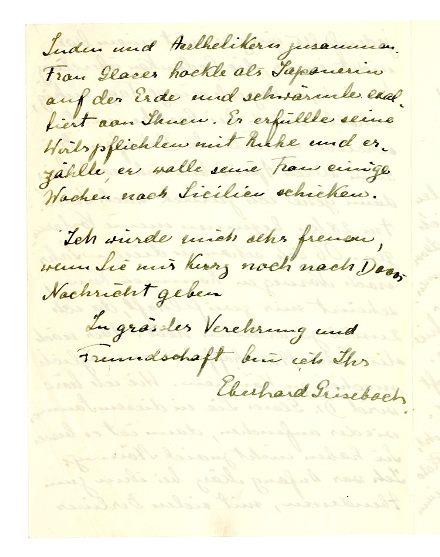 Juden und Aesthetikern zusammen.
Frau Glaser hockte als Japanerin
auf der Erde und schwärmte exal-
tiert von Ihnen. Er erfüllte seine
Wirtspflichten mit Ruhe und er-
zählte, er wolle seine Frau einige
Wochen nach Sicilien schicken.
Ich würde mich sehr freuen,
wenn Sie mir kurz noch nach Davos
Nachricht geben
In großer Verehrung und
Freundschaft bin ich Ihr
Eberhard Grisebach.